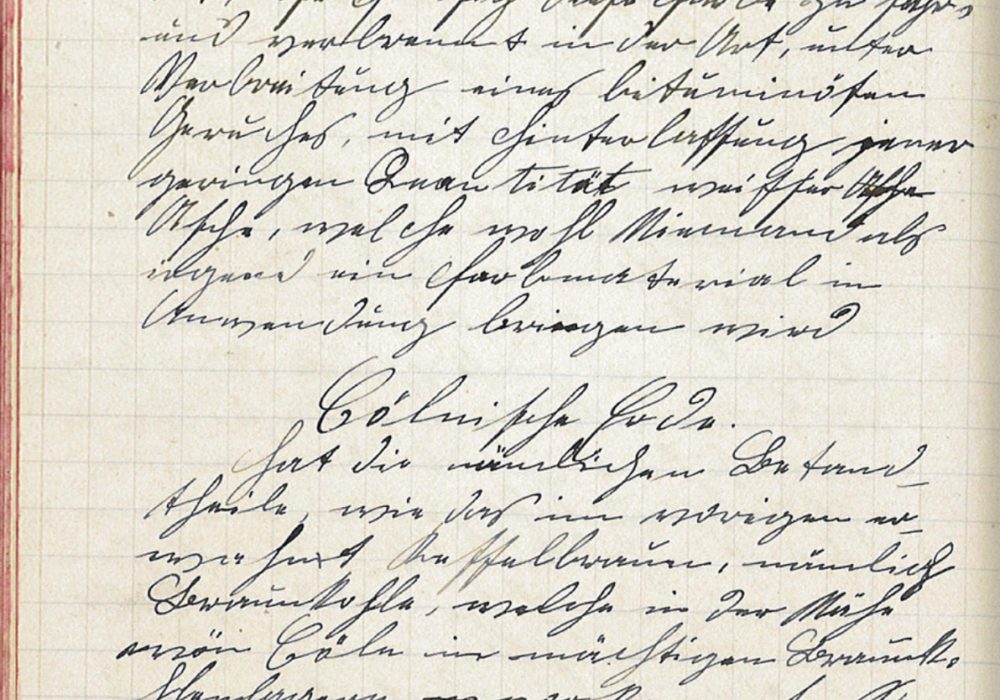 sich diese Farbe zu
und verbrennt in der Art, unter
Verbreitung eines bituminösen
Geruches, mit Hinterlassung jener
geringen Quantität weisser Asche
Asche, welche wohl Niemand als
irgend ein Farbmaterial in
Anwendung bringen wird
Cölnische Erde.
hat die nämlichen Bestand_
theile, wie das im vorigen er_
wähnt Kesselbraun, nämlich
Braunkohle, welche in der Nähe
von Cöln in mächtigen Braunk.